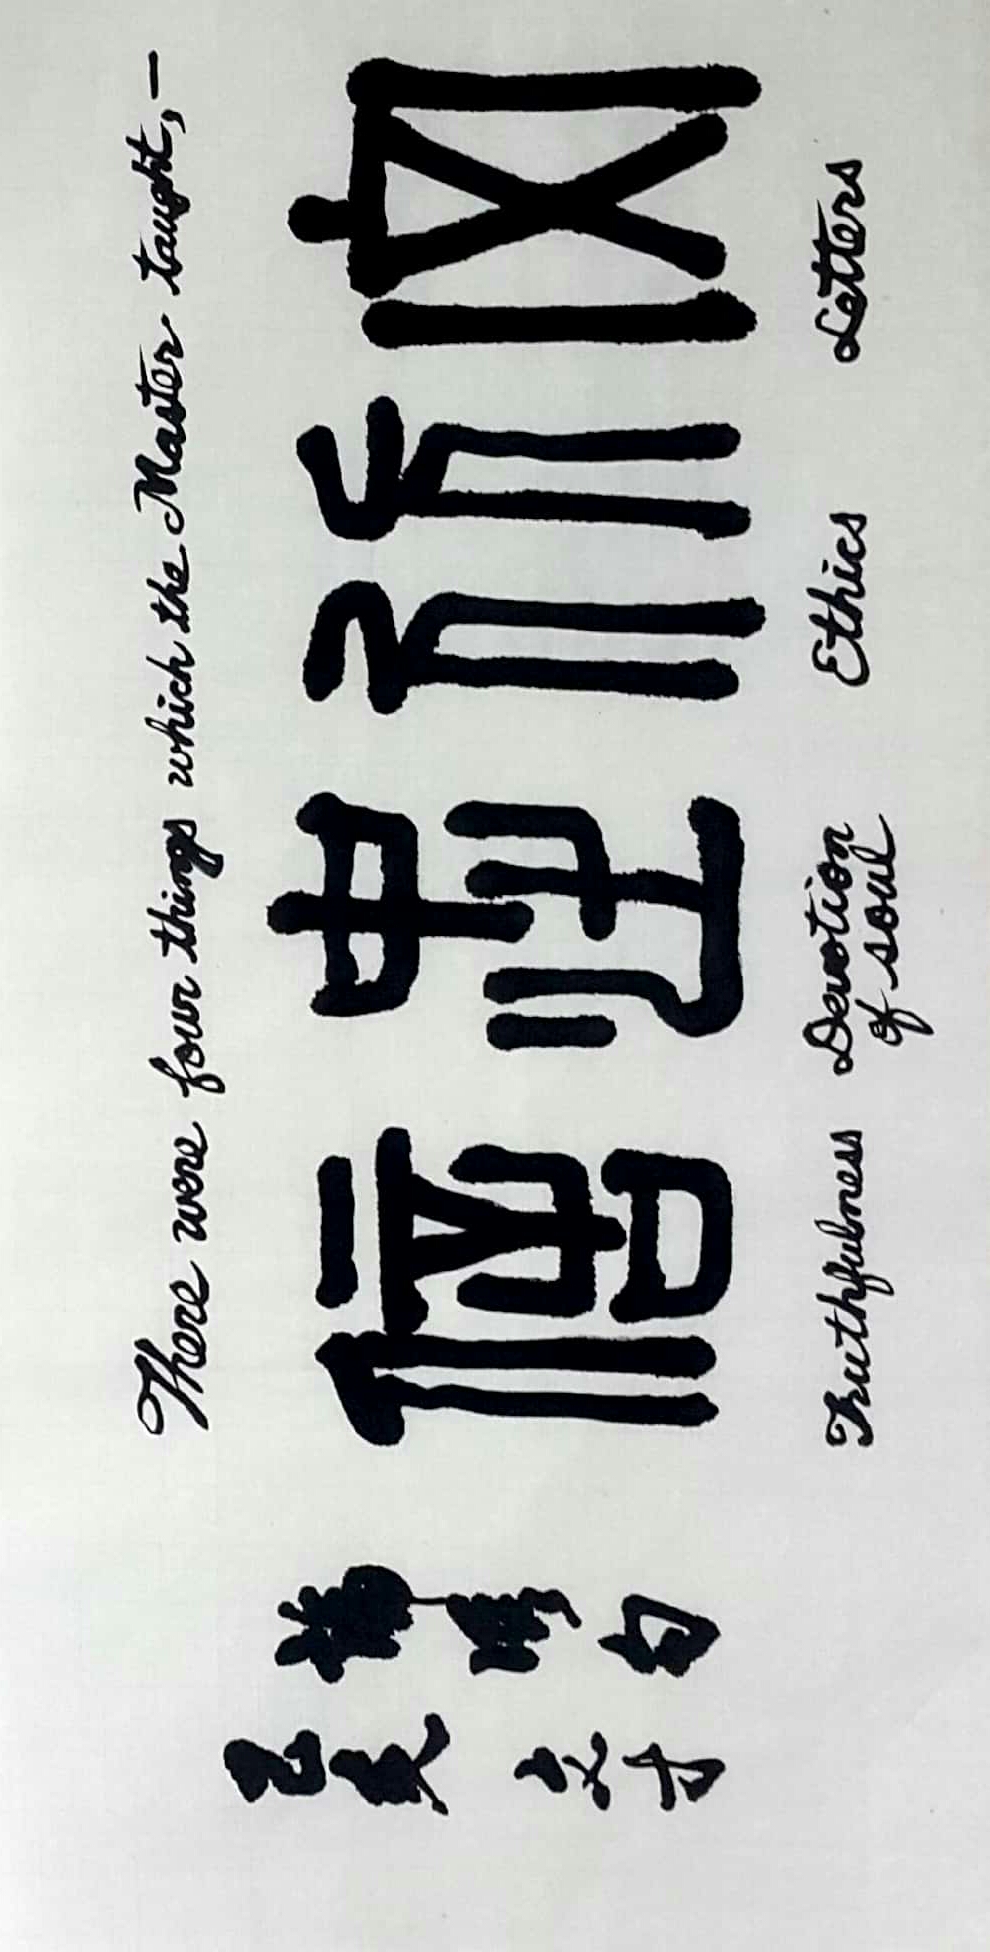 There were four things which the Master taught,—
文行忠信
Letters
Ethics
Devotion
of soul
Truthfulness